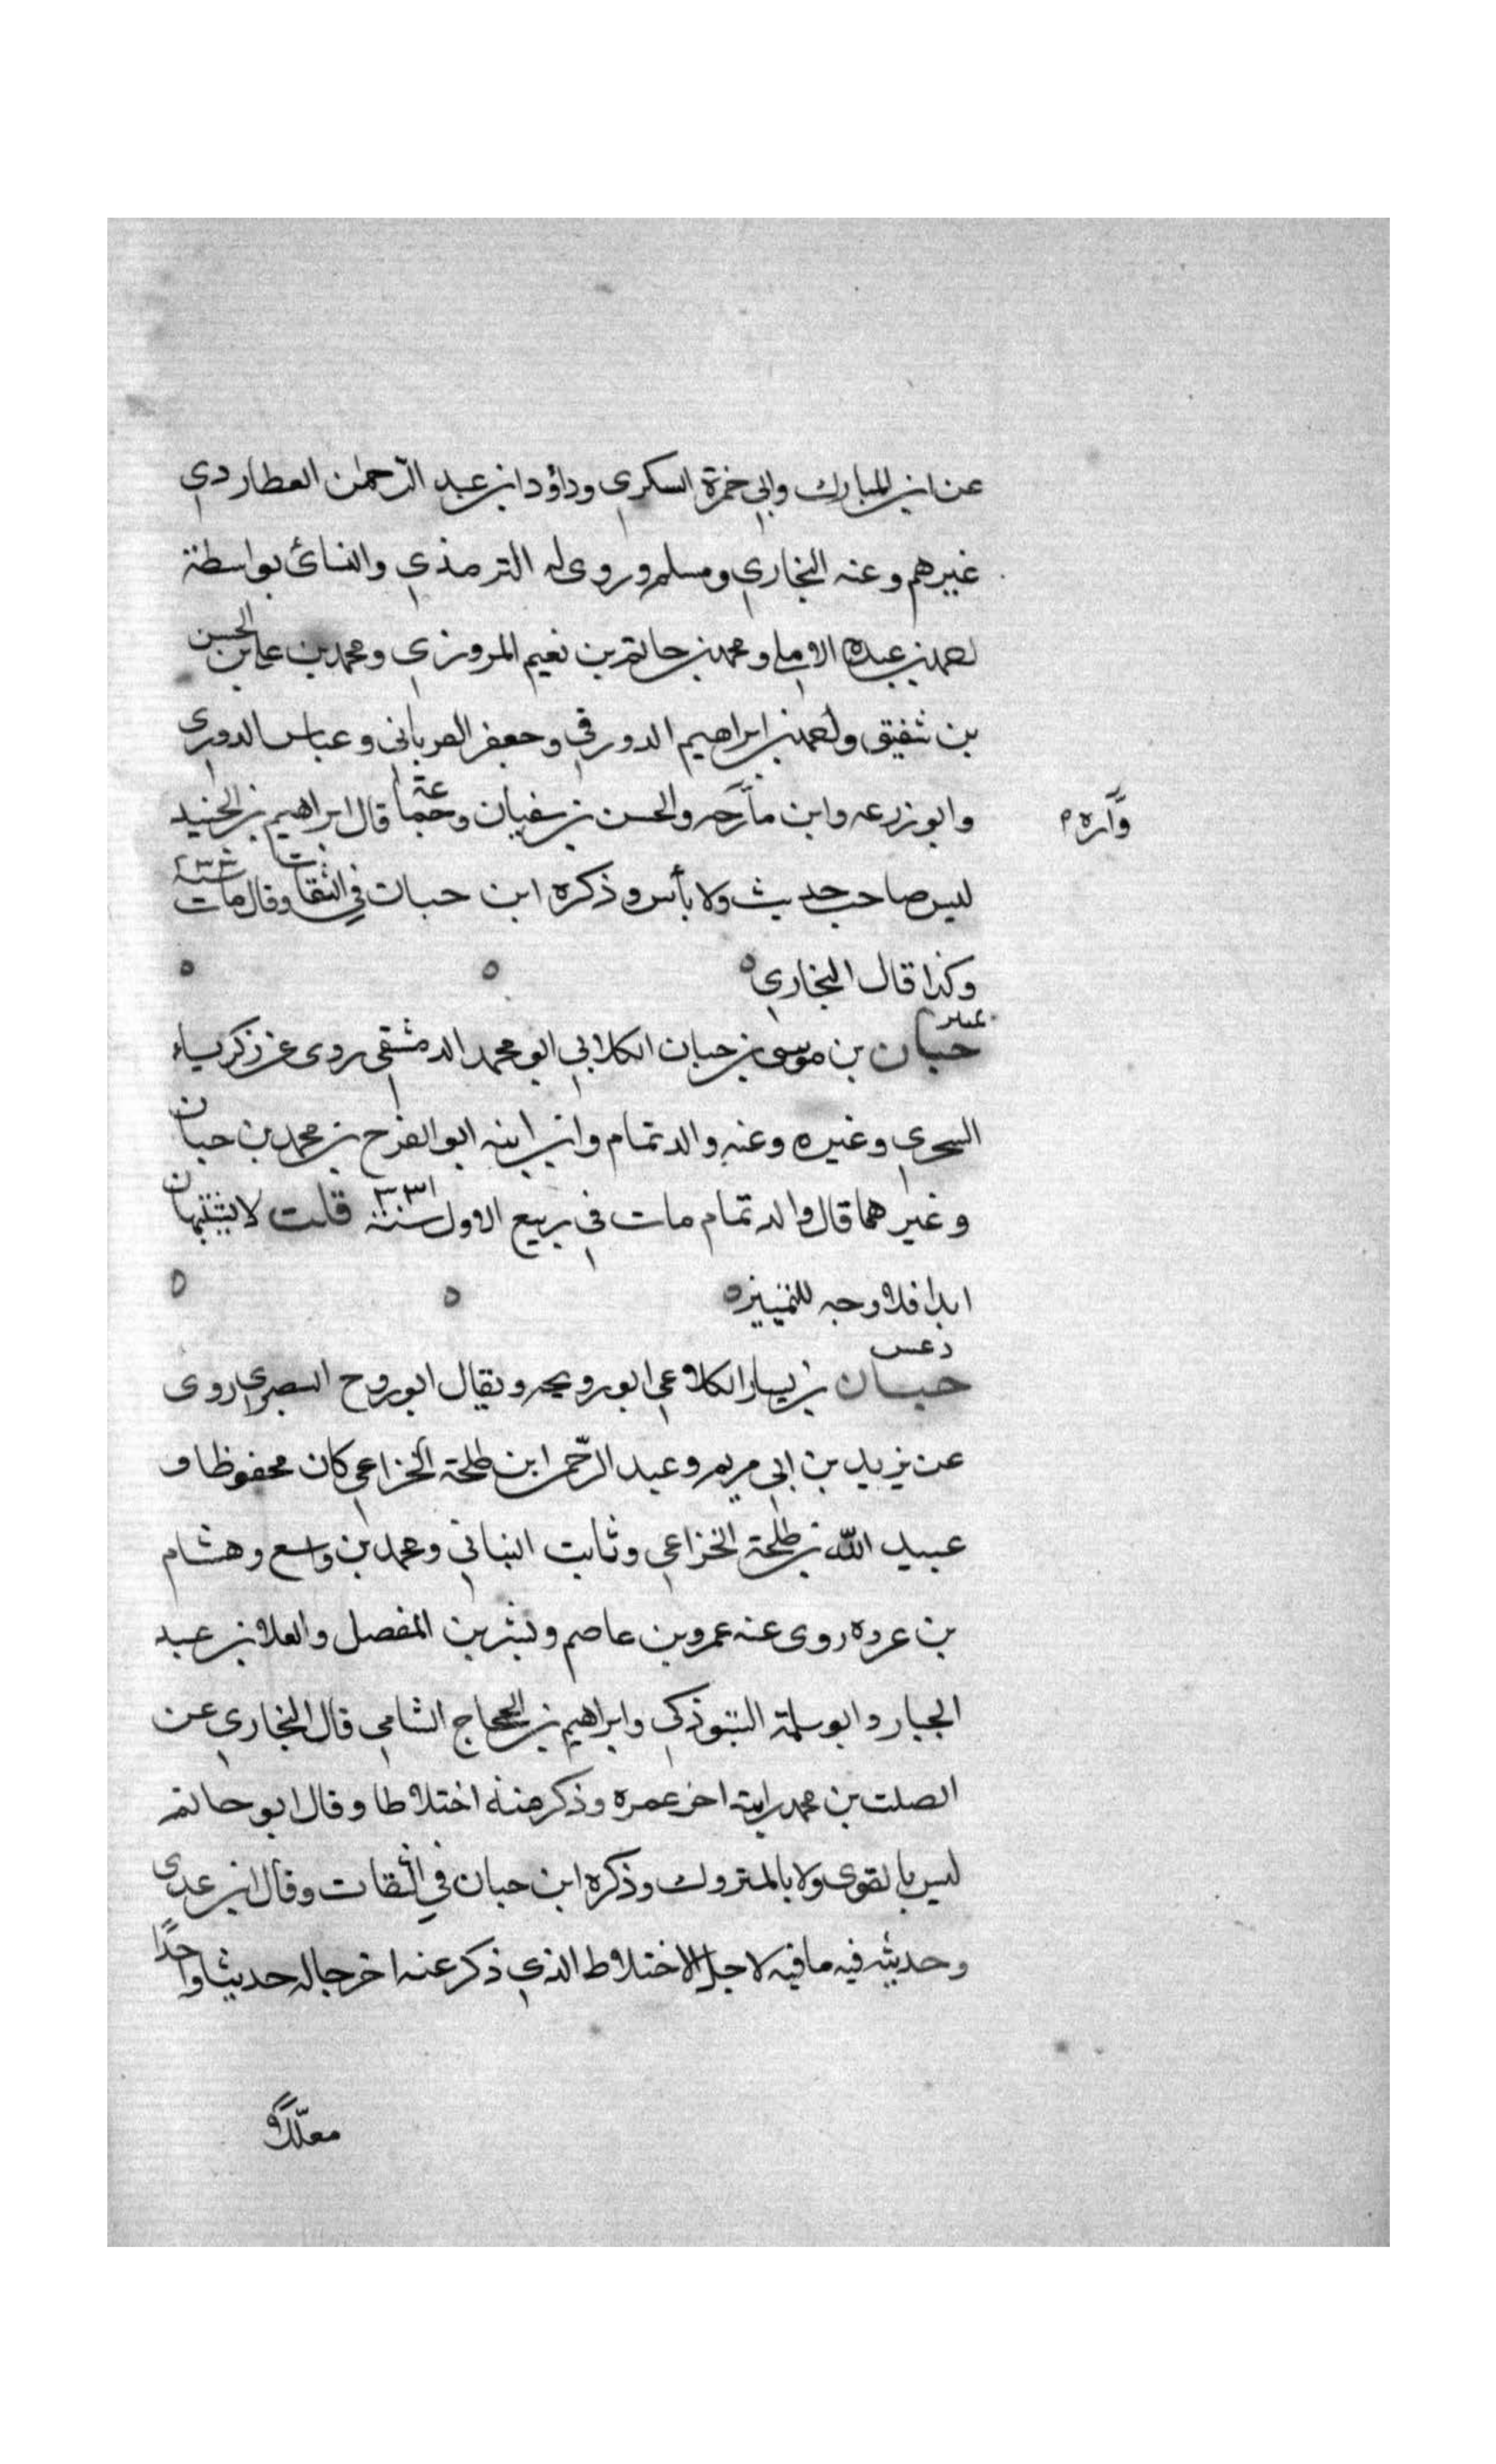 عن ابن المبارك وابي حمزة السكري وداؤد ابن عبد الرّحمٰن العطاردي
غيرهم وعنه البخاري ومسلم وروى له الترمذي والنسائ بواسطة
احمد بن عبدة الاملي ومحمد بن حاتم بن نعيم المروزي ومحمد بن علي بن الحسن
بن شقيق واحمد بن ابراهيم الدورقي وجعفر الفرياني وعباس الدوري
وابو زرعه وابن والحسن بن سفيان وجماعة قال ابراهيم بن الجنيد
وَّاره
ليس صاحب حديث ولا بأس وذكره ابن حبان في الثقات وقال مات سنة ٢٣٣
وكذا قال البخاري ه ه ه
حبان بن موسى بن حبان الكلابي ابو محمد الدمشقي روى عن زكرياء
السجزي وغيره وعنه والد تمام وابن ابنه ابو الفرج بن محمد بن حبان
وغيرهما قال والد تمام مات في ربيع الاول سنة ٣٣١ قلت لا يشتبهان
ابدا فلا وجه للتمييز ه ه ه
حبان بن يسار الكلاعي ابو رويحه ويقال ابو روح البصري روى
عن يزيد بن ابي مريم وعبد الرّحمن ابن طلحة الخزاعي كان محفوظا و
عبيد اللّه بن طلحة الخزاعي وثابت البناني ومحمد بن واسع وهشام
بن عروه روى عنه عمرو بن عاصم وبشر بن المفضل والعلا بن عبد
الجبار وابو سلمة التبوذكي وابراهيم بن الحجاج الشامي قال البخاري عن
الصلت بن محمد رايته اخر عمره وذكر منه اختلاطا وقال ابو حاتم
ليس بالقوى ولا بالمتروك وذكره ابن حبان في الثقات وقال ابن عدى
وحديثه فيه ما فيه لاجل الاختلاط الذي ذكر عنه اخرجا له حديثا واحدًا